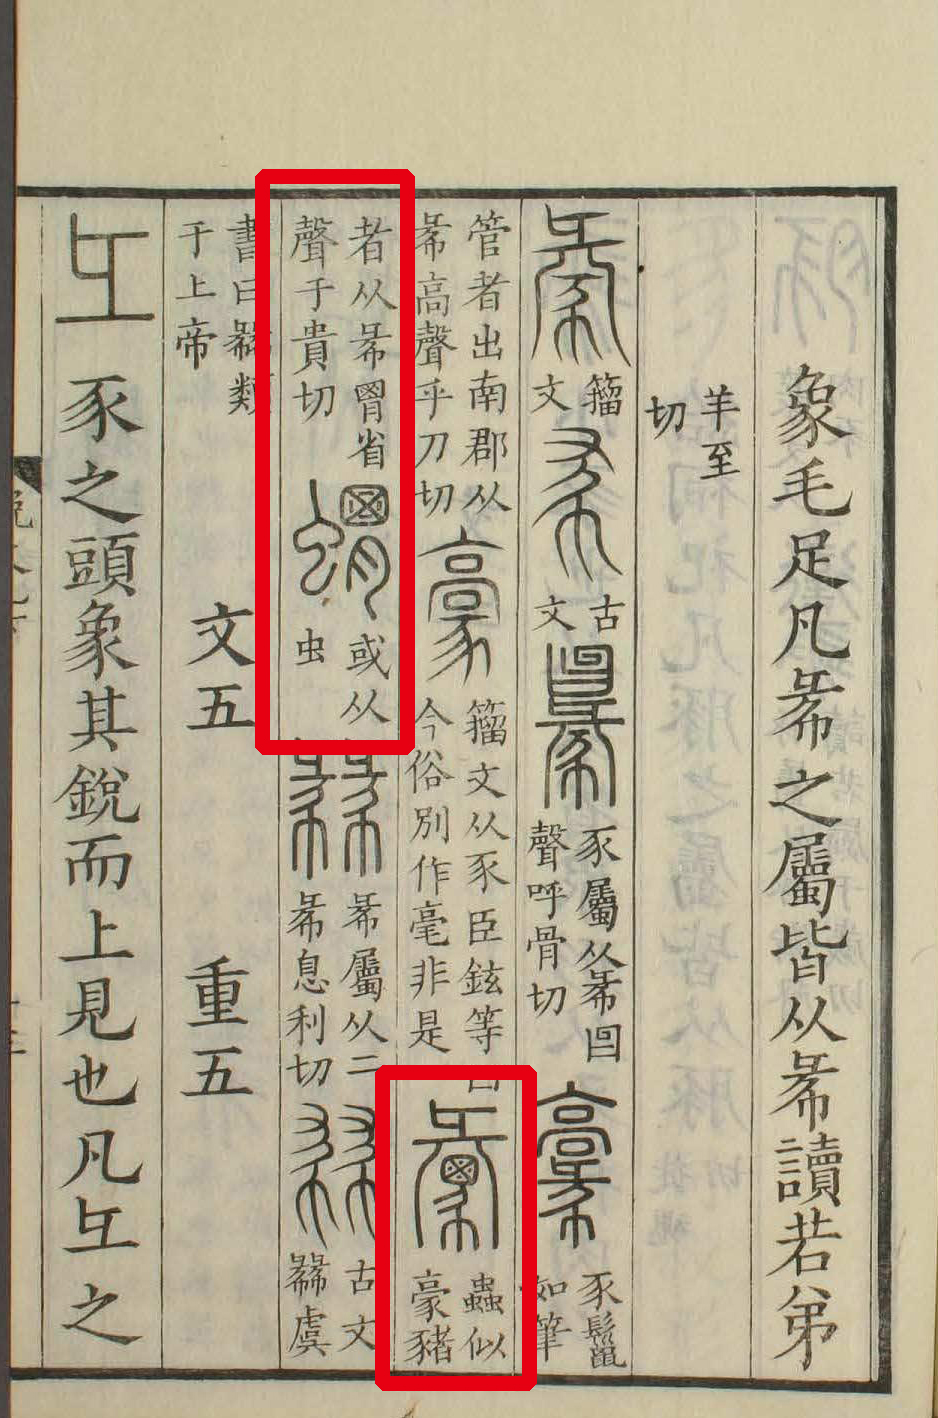 象毛足凡㣇之屬皆从㣇讀若弟
羊至切
㣇籀文 古文𢑴豕屬从㣇囘聲呼骨切豪豕鬣如筆
管者出南郡从㣇高聲乎刀切豪籀文从豕臣鉉等曰今俗別作毫非是彙蟲似豪豬
者从㣇胃省聲于貴切蝟或从虫㣈㣇屬从二㣇息利切 古文㣈虞
書曰㣈類于上帝 文五 重五
彑豕之頭象其銳而上見也凡彑之